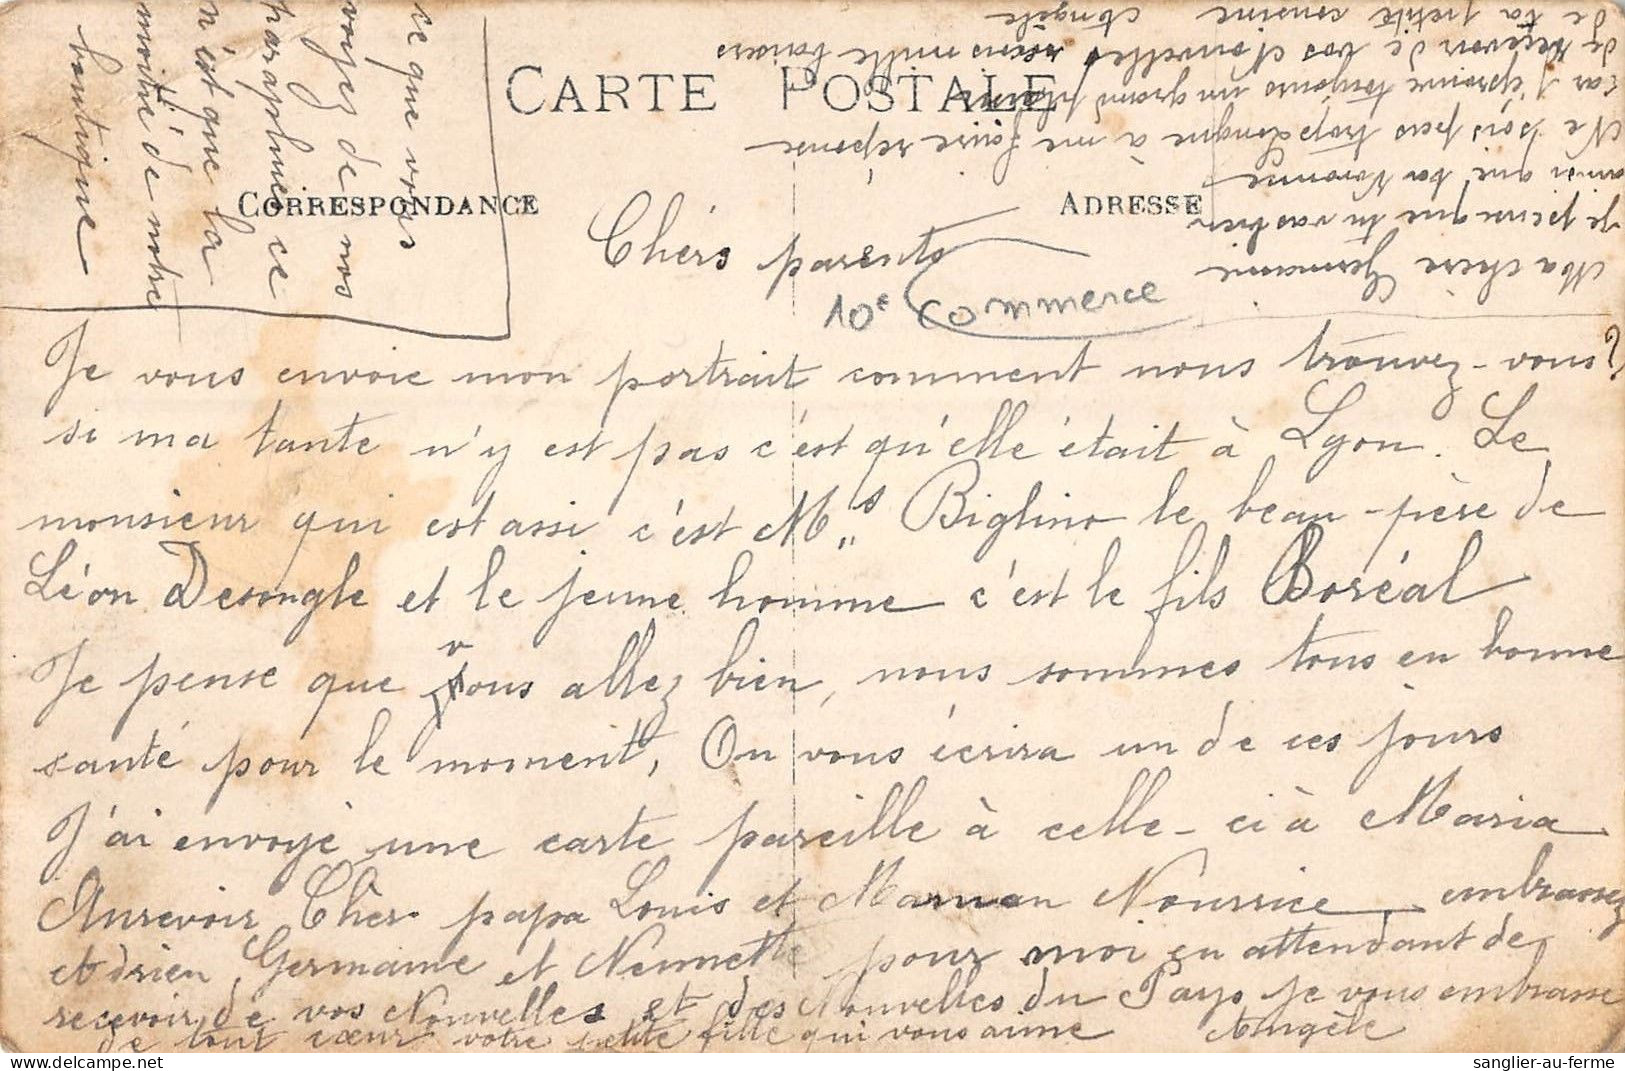 CARTE POSTALE
CORRESPONDANCE
ADRESSE
Chèrs parents
10e commerce
Je vous envoie mon portrait comment nous trouvez-vous?
si ma tante n'y est pas c'est qu'elle était à Lyon. Le
monsieur qui est assi c'est Ms Biglino le beau-père de
Léon Desongle et le jeune homme c'est le fils Boréal
Je pense que vous allez bien, nous sommes tous en bonne
santé pour le moment, On vous écrira un de ces jours
J'ai envoyé une carte pareille à celle-ci à Maria
Aurevoir Chèr papa Louis et Maman Nourrice, embrassez
Adrien Germaine et Nennette pour moi en attendant de
recevoir de vos Nouvelles et des Nouvelles du Pays je vous embrasse
de tout cœur votre petite fille qui vous aime Angèle
ce que vous
voyez de nos
parapluies ce
n'est que la
moitié de notre
boutique
Ma chère Germaine
je pense que tu vas bien
ainsi que ta
Ne sois pas trop longue à me faire réponse
car j'éprouve toujours un grand plaisir
de recevoir de vos Nouvelles reçois mille baisers
de ta petite cousine Angèle
sanglier-au-ferme